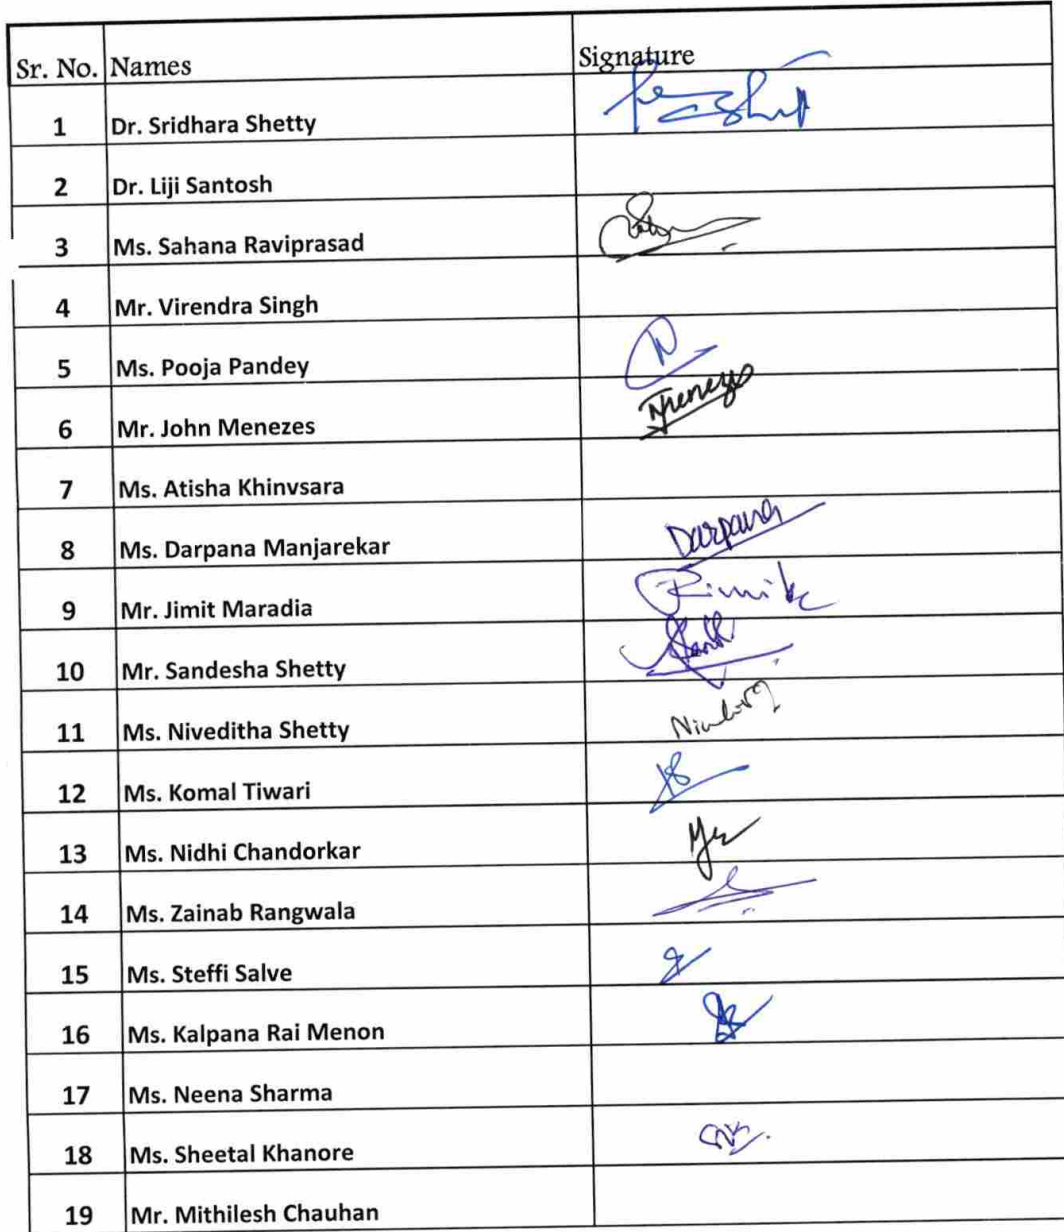 Sr. No. Names Signature
1 Dr. Sridhara Shetty
2 Dr. Liji Santosh
3 Ms. Sahana Raviprasad
4 Mr. Virendra Singh
5 Ms. Pooja Pandey
6 Mr. John Menezes Menezes
7 Ms. Atisha Khinvsara
8 Ms. Darpana Manjarekar Darpana
9 Mr. Jimit Maradia
10 Mr. Sandesha Shetty
11 Ms. Niveditha Shetty
12 Ms. Komal Tiwari
13 Ms. Nidhi Chandorkar
14 Ms. Zainab Rangwala
15 Ms. Steffi Salve
16 Ms. Kalpana Rai Menon
17 Ms. Neena Sharma
18 Ms. Sheetal Khanore
19 Mr. Mithilesh Chauhan